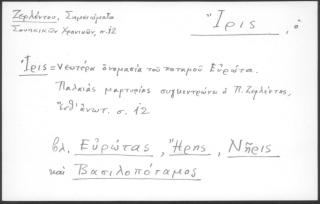 Ζερλέντου, Σημειώματα
Σουηδικῶν Χρονικῶν, σ. 12
Ἴρις, ὁ
Ἴρις = Νεωτέρα ὀνομασία τοῦ ποταμοῦ Εὐρώτα.
Παλαιὰς μαρτυρίας συγκεντρώνει ὁ Π. Ζερλέντος,
ἔνθ' ἀνωτ. σ. 12
βλ. Εὐρώτας, Ἤρης, Νῆρις
καὶ Βασιλοπόταμος